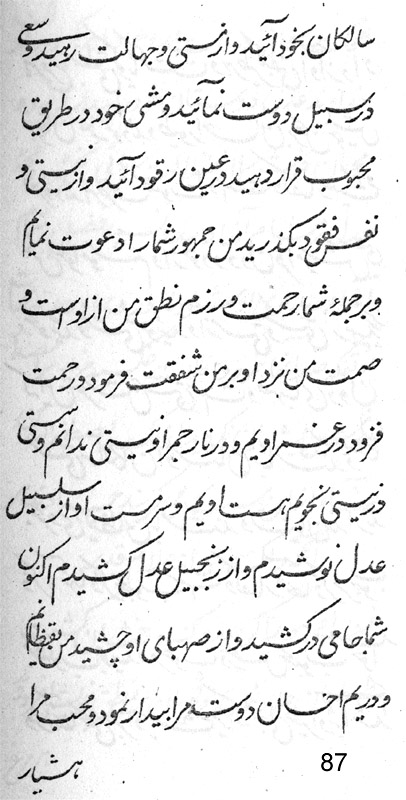 سالکان بخود آئید و از نیستی و جهالت رهید و سعی
در سبیل دوست نمائید و مشی خود در طریق
محبوب قرار دهید در عین رقود آئید و از نیستی و
نفس فقود بگذرید من جمهور شما را دعوت نمایم
و بر جملهٔ شما رحمت ورزم نطق من از اوست و
صمت من نزد او بر من شفقت فرمود و رحمت
فزود در غمر اویم و در نار جمر او نیستی ندانم و سستی
در نیستی نجویم هست اویم و سرمست او از سلسبیل
عدل نوشیدم و از زنجبیل عدل کشیدم اکنون
شما جامی در کشید و از صهبای او چشید من یقظانم
و در یم احسان دوست مرا بیدار نمود و محب مرا
هشیار
87